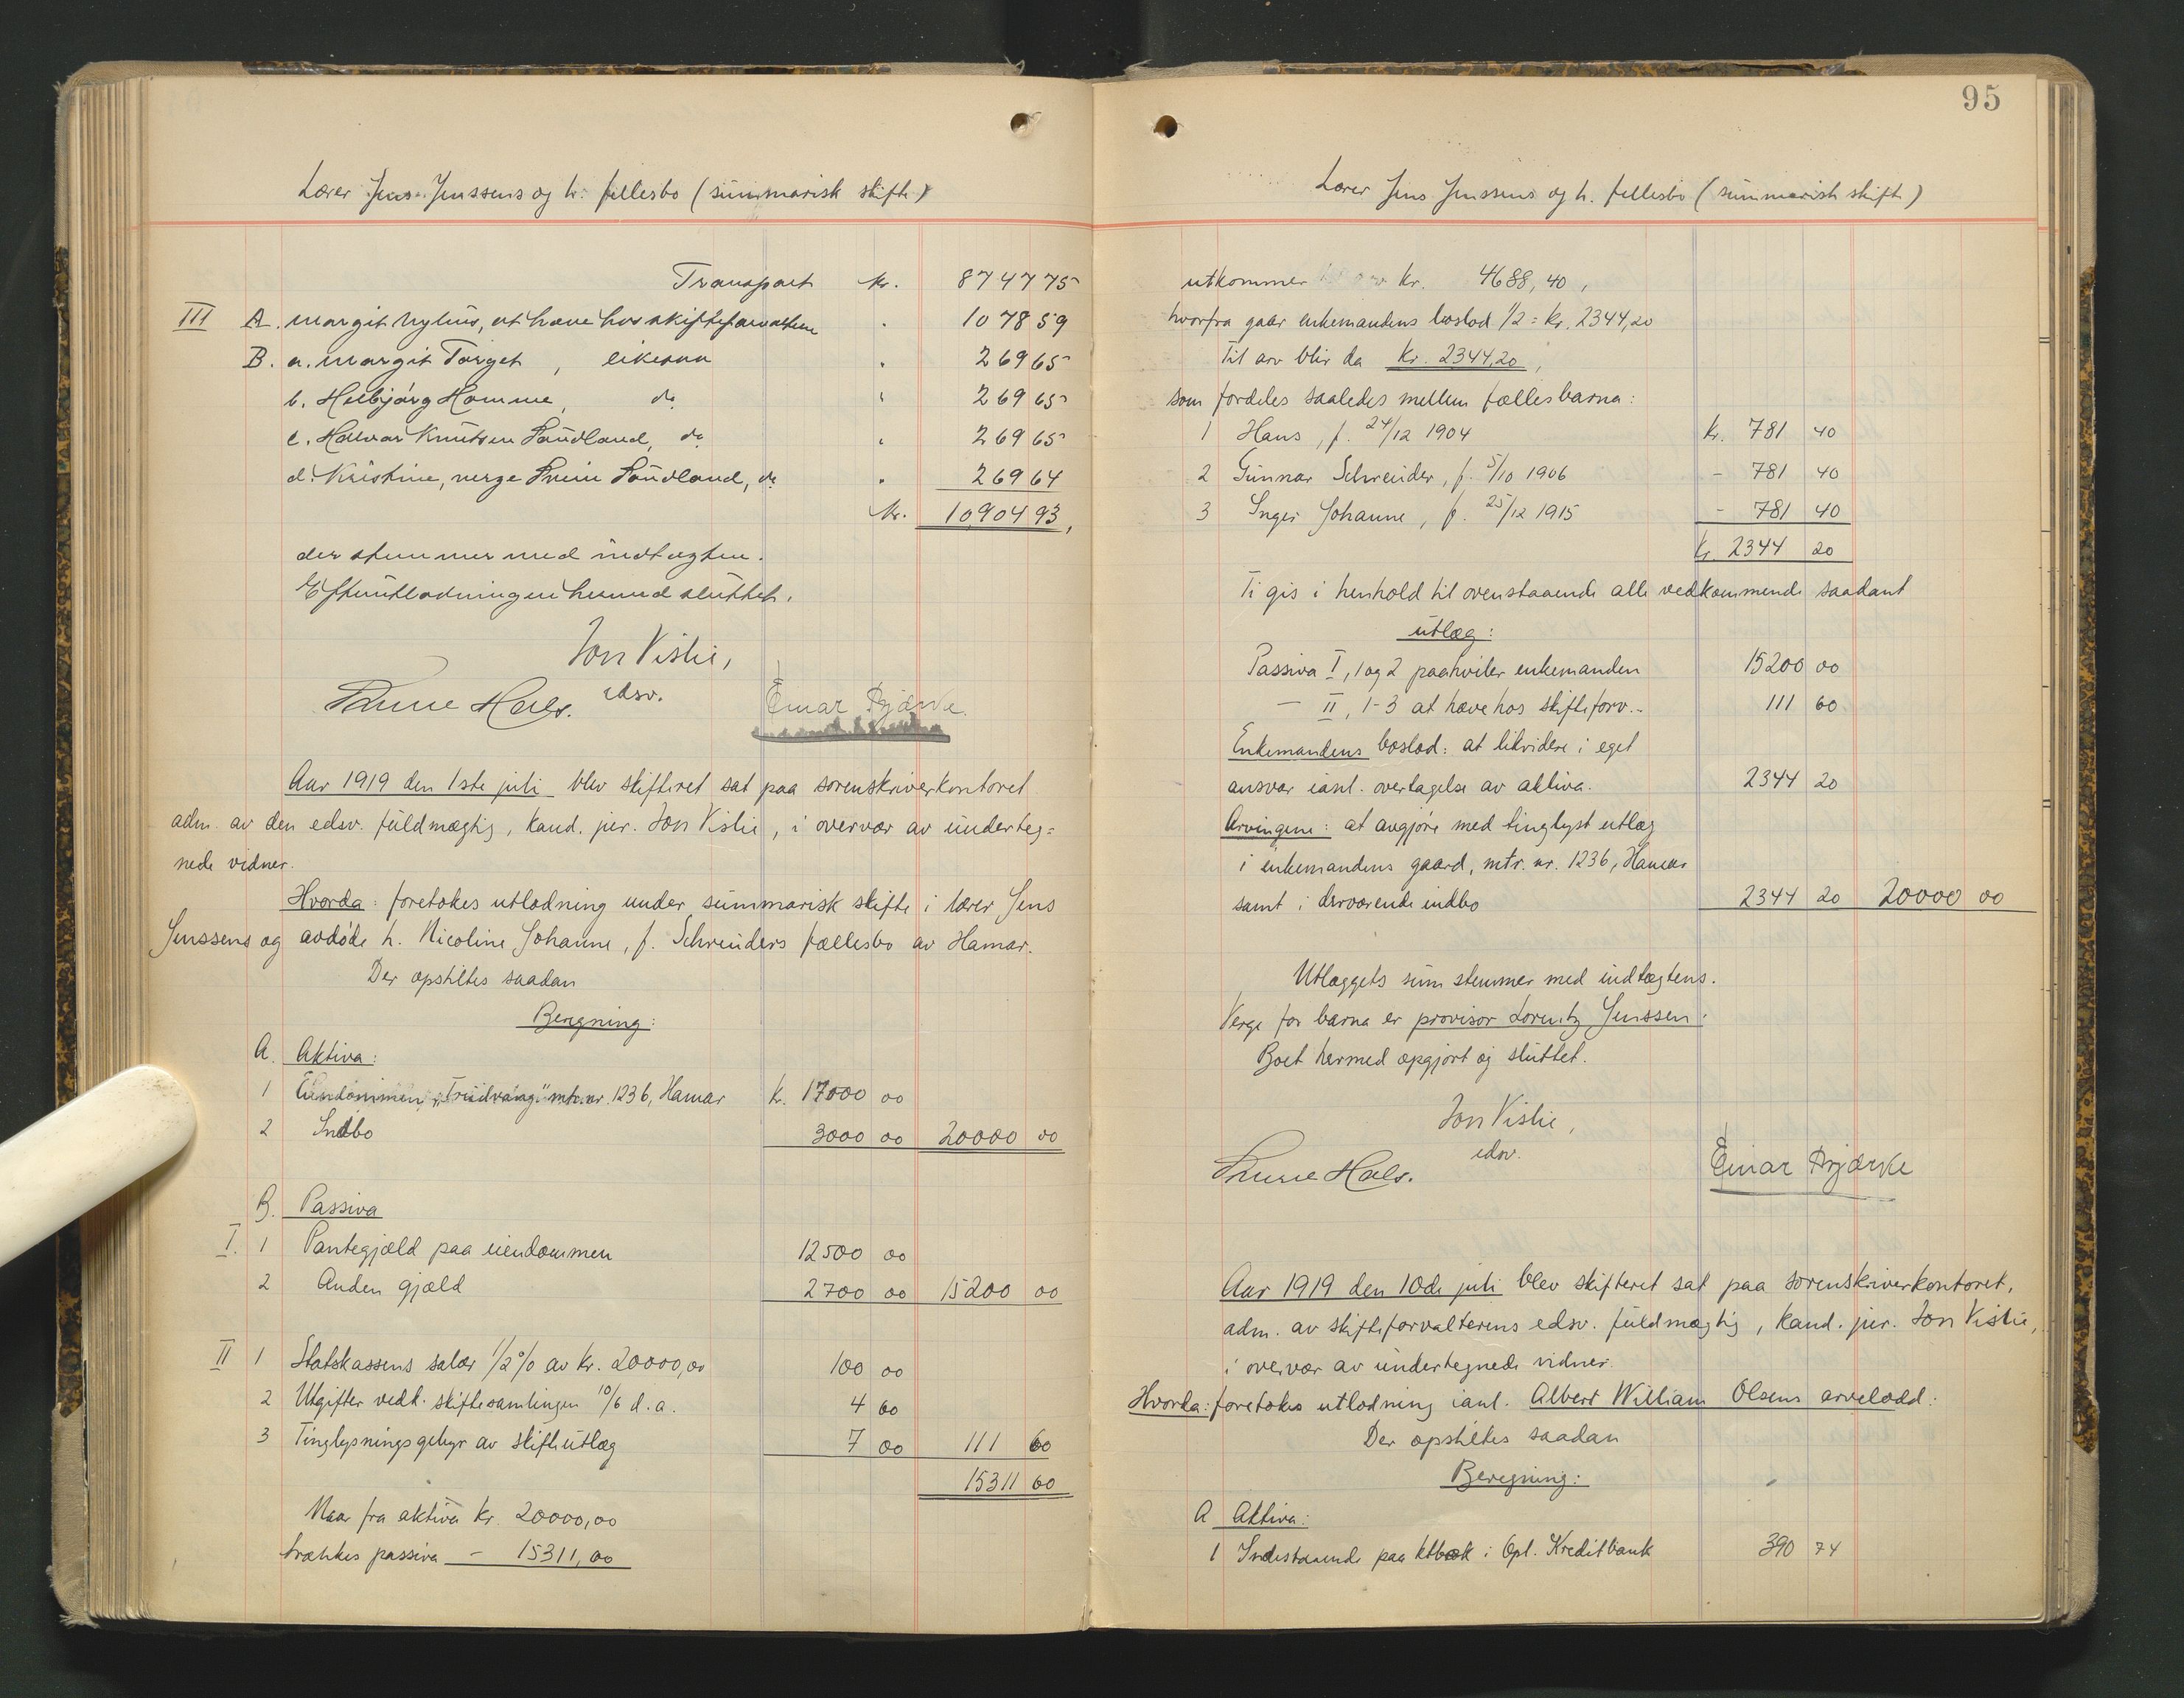 Lærer Jens Jenssens og h. fellesbo (summarisk skifte)
Transport kr. 8747 75
III A. Margit Nyhus, at hæve hos skifteforvalteren " 1078 59
B. a. Margit Torget, likesaa " 269 65
b. Helbjørg Homme, do " 269 65
c. Halvar Knutsen Sandland, do " 269 65
d. Kristine, verge Svein Sandland, do " 269 64
kr. 10904 93,
der stemmer med indtægten.
Efterutlodningen hermed sluttet.
Jon Vislie,
edsv.
Hals. Einar Bjærke
Aar 1919 den 1ste juli blev skifteret sat paa sorenskriverkontoret
adm. av den edsv. fuldmægtig, kand. jur. Jon Vislie, i overvær av underteg=
nede vidner.
Hvorda: foretokes utlodning under summarisk skifte i lærer Jens
Jenssens og avdøde h. Nicoline Johanne, f. Schreuders fællesbo av Hamar.
Der opstiltes saadan
Beregning:
A. Aktiva:
1 Eiendommen "Trudvang" mtr.nr. 1236, Hamar k. 17000 00
2 Indbo 3000 00 20000 00
B. Passiva
I. 1 Pantegjæld paa eiendommen 12500 00
2 Anden gjæld 2700 00 15200 00
II 1 Statskassens salær 1/2 % av kr. 20000,00 100 00
2 Utgifter vedk. skiftesamlingen 10/6 d.a. 4 60
3 Tinglysningsgebyr av skifteutlæg 7 00 111 60
15311 60
Naar fra aktiva kr. 20000,00
trækkes passiva - 15311,00
95
Lærer Jens Jenssens og h. fellesbo (summarisk skifte)
utkommer kr. 4688,40,
hvorfra gaar enkemandens boslod 1/2 = kr. 2344,20
Til arv blir da kr. 2344,20,
som fordeles saaledes mellem fællesbarna:
1 Hans, f. 24/12 1904 kr. 781 40
2 Gunnar Schreuder, f. 5/10 1906 - 781 40
3 Inger Johanne, f. 25/12 1915 - 781 40
kr. 2344 20
Ti gis i henhold til ovenstaaende alle vedkommende saadant
utlæg:
Passiva I, 1 og 2 paahviler enkemanden 15200 00
— II, 1-3 at hæve hos skifteforv.- 111 60
Enkemandens boslod: at likvidere i eget
ansvar ianl. overtagelse av aktiva. 2344 20
Arvingene: at avgjøre med tinglyst utlæg
i enkemandens gaard, mtr. nr. 1236, Hamar
samt i derværende indbo 2344 20 20000 00
Utlæggets sum stemmer med indtægtens.
Verge for barna er provisor Lorentz Jenssen.
Boet hermed opgjort og sluttet.
Jon Vislie,
edsv.
Hals. Einar Bjærke
Aar 1919 den 10de juli blev skifteret sat paa sorenskriverkontoret,
adm. av skifteforvalterens edsv. fuldmægtig, kand. jur. Jon Vislie,
i overvær av undertegnede vidner.
Hvorda: foretokes utlodning ianl. Albert William Olsens arvelodd:
Der opstiltes saadan
Beregning:
A Aktiva:
1 Indestaaende paa ktbok i Opl. Kreditbank 390 74